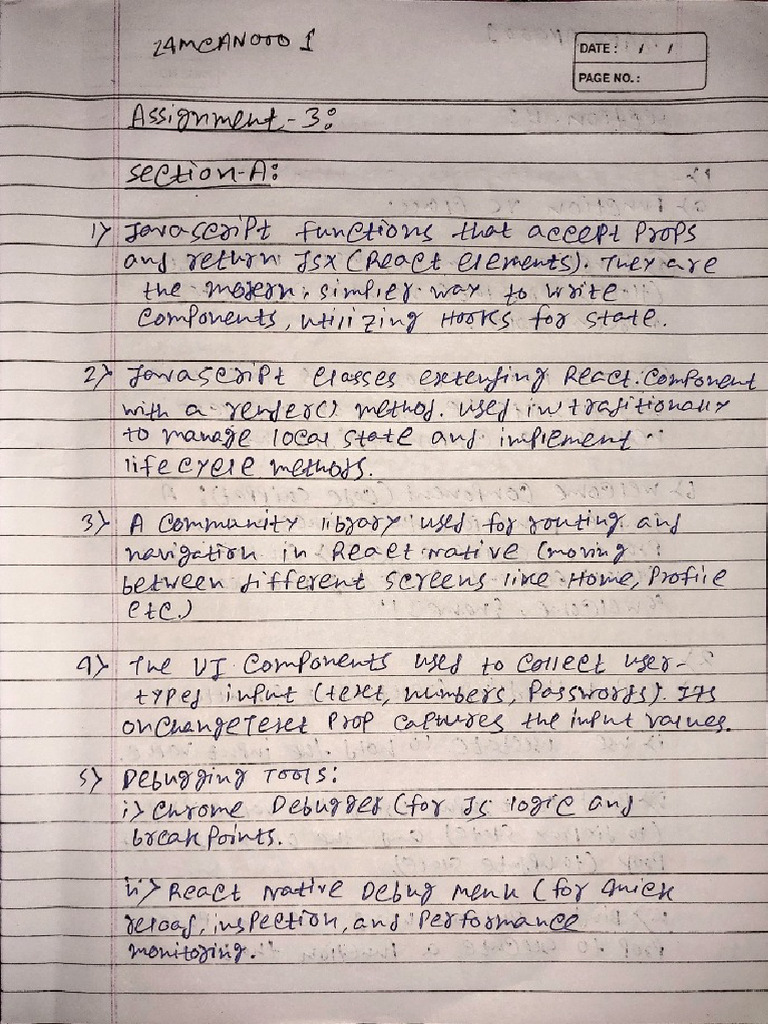 24MCAN0001
DATE: / /
PAGE NO.:
Assignment-3:
Section-A:
1) Javascript functions that accept Props
and return JSX (React elements). They are
the modern, simpler way to write
Components, utilizing Hooks for state.
2) Javascript classes extending React.Component
with a render() method. used in traditionally
to manage local state and implement
lifecycle methods.
3) A Community library used for routing and
navigation in React Native (moving
between different screens like Home, Profile
etc.)
4) The UI Components used to collect user-
typed input (text, numbers, Passwords). Its
onChangeText Prop captures the input values.
5) Debugging Tools:
i) Chrome Debugger (for Js logic and
breakpoints.
ii) React Native Debug menu (for quick
reload, inspection, and Performance
monitoring.